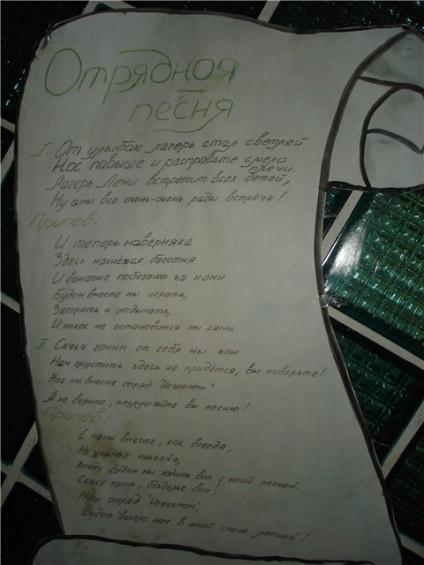 Отрядная
песня
I. От улыбок лагерь стал светлей
Нос повыше и расправьте смело плечи.
Лагерь Лени встретит всех детей,
Ну а мы все очень-очень рады встрече!
Припев:
И теперь наверняка
Здесь начнётся
И вожатые побегают за нами
Будем вместе мы играть,
Загорать и отдыхать,
И никак не остановимся мы сами.
II. Скуку гоним от себя мы вон
Нам грустить здесь не придётся, вы поверьте!
Все мы вместе отряд "
А не верите, послушайте вы песню!
Припев:
С нами вместе, как всегда,
Не никогда,
Всюду будем мы ходить вот с этой песней.
Скуку прочь, бодрее вой!
Наш отряд "
Будет весело нам в этой смене летней!